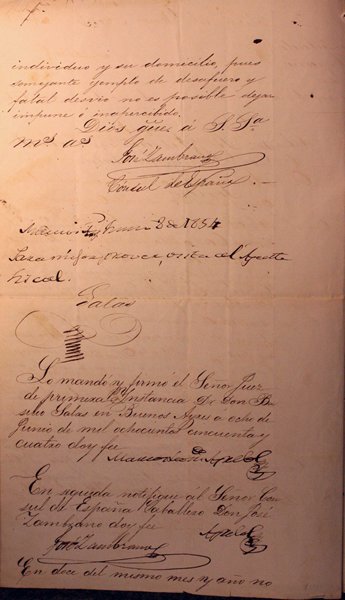 individuo y su domicilio, pues
semejante ejemplo de desafuero y
fatal desvio no es posible dejar
impune e inapercibido.
Dios gue á S. Sa
ms as
José Zambrano
Consul de España
8 de 1854
Para mejor proveer, vista al Agente
fiscal.
Salas
Lo mandó y firmó el Señor Juez
de primera Instancia Dr Don Ba
silio Salas en Buenos Ayres a ocho de
Junio de mil ochocientos cincuenta y
cuatro doy fe
En seguida notifique al Señor Con
sul de España Caballero Don José
Zambrano doy fe
José Zambrano
En doce del mismo mes y año no